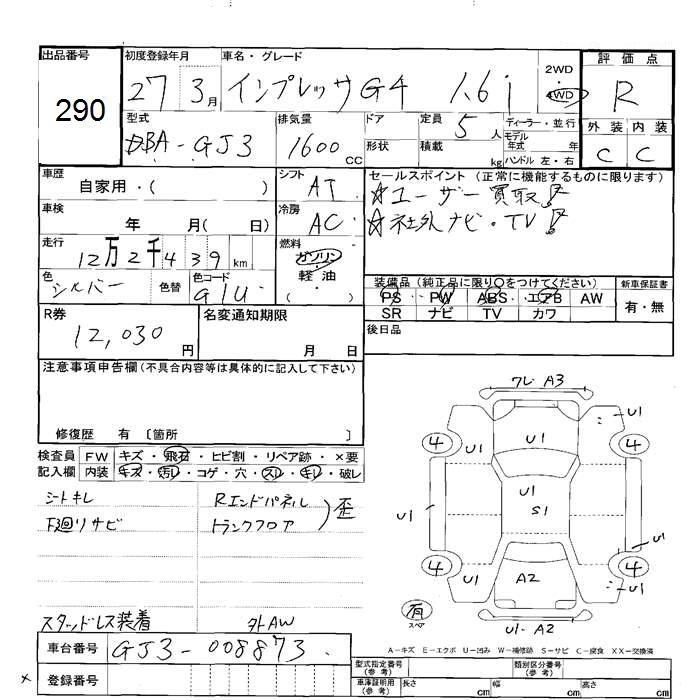 出品番号 初度登録年月 車名・グレード 2WD 評価点
290 27 3月 インプレッサG4 1.6i 4WD R
型式 排気量 ドア 定員 ディーラー・並行 外装 内装
DBA-GJ3 1600 CC 形状 5人 モデル年式 年 C C
積載 kg ハンドル 左・右
車歴 シフト セールスポイント (正常に機能するものに限ります)
自家用・( ) AT ☆ユーザー買取
車検 冷房 ☆社外ナビ・TV
年 月( 日) AC
走行 燃料
12万2千439km ガソリン
色 色コード 軽油
シルバー 色替 G1U ( ・ )
装備品 (純正品に限り○をつけてください) 新車保証書
PS PW ABS エアB AW 有・無
SR ナビ TV カワ
R券 名変通知期限 後日品
12,030円 月 日
注意事項申告欄(不具合内容等は具体的に記入して下さい)
修復歴 有 〔箇所 〕
検査員 FW キズ・飛石・ヒビ割・リペア跡・×要
記入欄 内装 キズ・汚れ・コゲ・穴・スレ・キレ・破レ
シートキレ Rエンドパネル
下廻リサビ トランクフロア 歪
スタッドレス装着 外AW
車台番号 GJ3-008873
× 登録番号
ワレ A3
U1
④ U1 U1 ④
U1
U1 S1
U1
④ U1 A2 U1 ④
有
スペア U1-A2
A-キズ E-エクボ U-凹み W-補修跡 S-サビ C-腐食 XX-交換済
型式指定番号(参考) 類別区分番号(参考)
車庫証明用(参考) 長さ cm 幅 cm 高さ cm